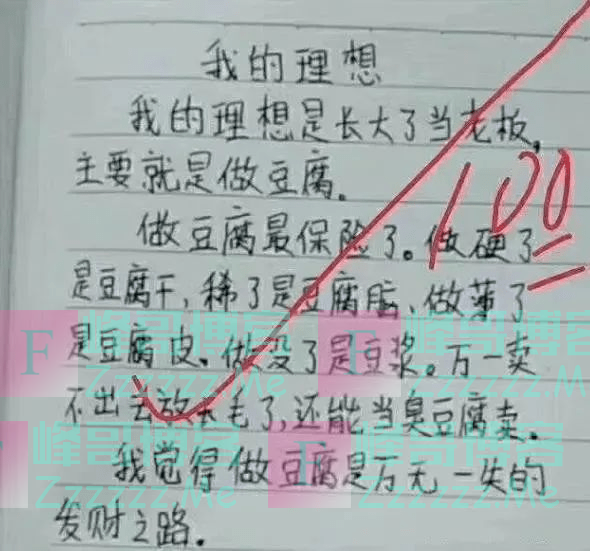 我的理想
我的理想是长大了当老板,
主要就是做豆腐。
做豆腐最保险了。做硬了
是豆腐干,稀了是豆腐脑、做薄了
是豆腐皮、做没了是豆浆。万一卖
不出去放长毛了,还能当臭豆腐卖。
我觉得做豆腐是万无一失的
发财之路。
100
F 峰哥博客
Zzzzzzz.Me
F 峰哥博客
Zzzzzzz.Me
峰哥博客
Zzzzzzz.Me
F 峰哥博客
Zzzzzzz.Me